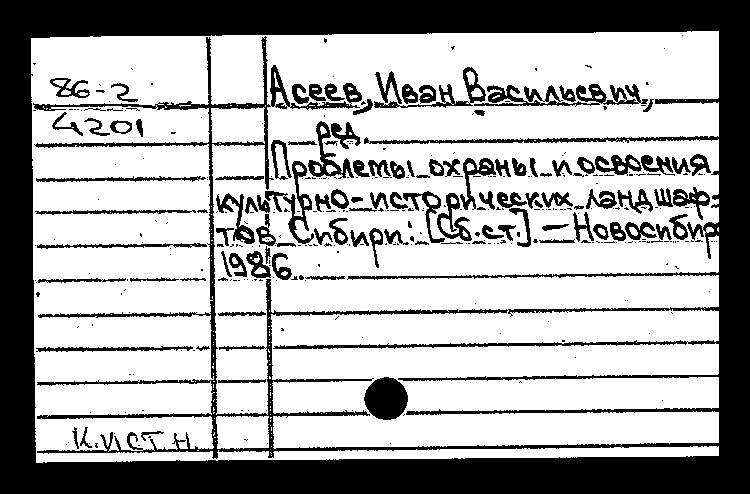 86-2
4201.
Асеев, Иван Васильевич,
ред.
Проблемы охраны и освоения
культурно-исторических ландшаф-
тов Сибири: [Сб.ст.]. — Новосибир
1986.
К.ИСТ.Н.